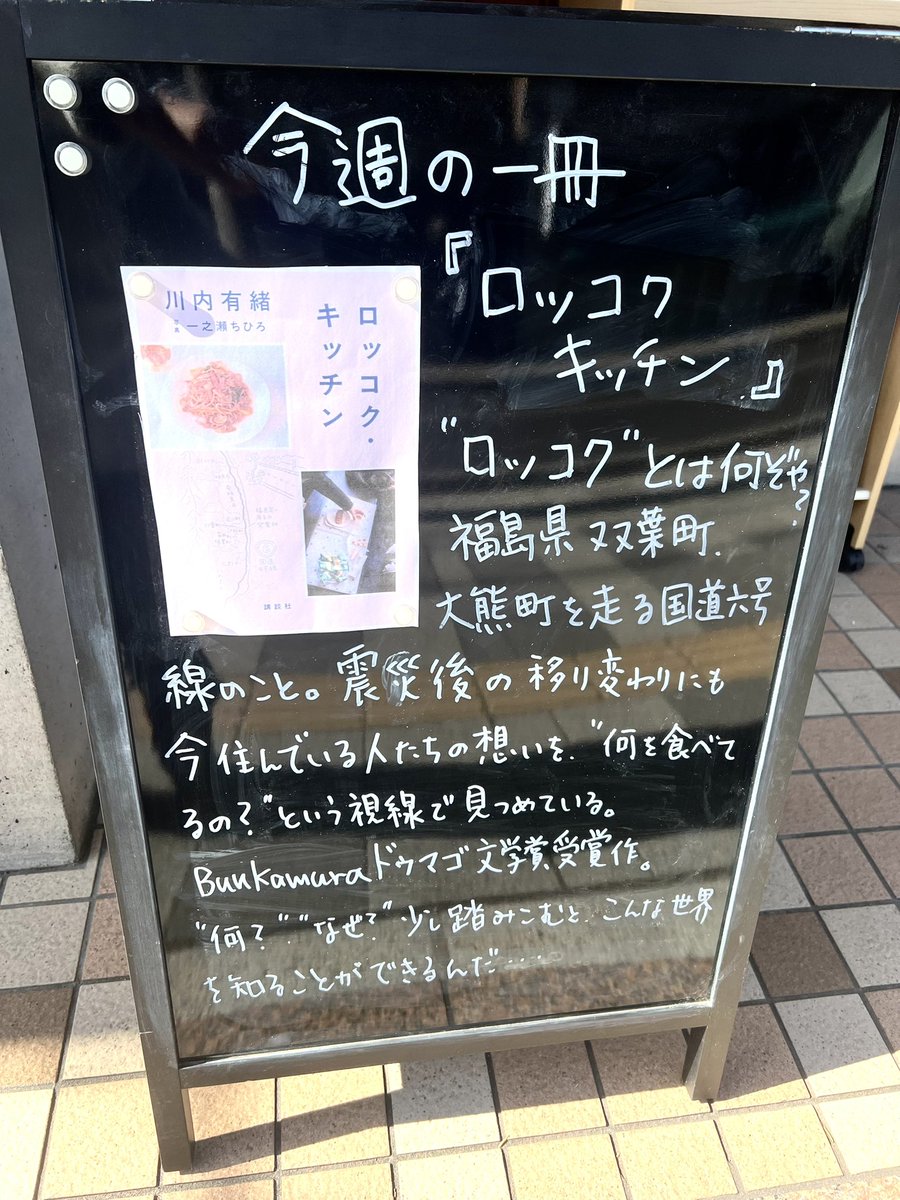 今週の一冊
『ロッコク
キッチン』
川内有緒
写真 一之瀬ちひろ
ロッコク・
キッチン
講談社
"ロッコク"とは何ぞや?
福島県双葉町、
大熊町を走る国道六号
線のこと。震災後の移り変わりにも
今住んでいる人たちの想いを、"何を食べて
るの?"という視線で見つめている。
Bunkamuraドゥマゴ文学賞受賞作。
"何?" "なぜ?" 少し踏みこむと、こんな世界
を知ることができるんだ‥‥